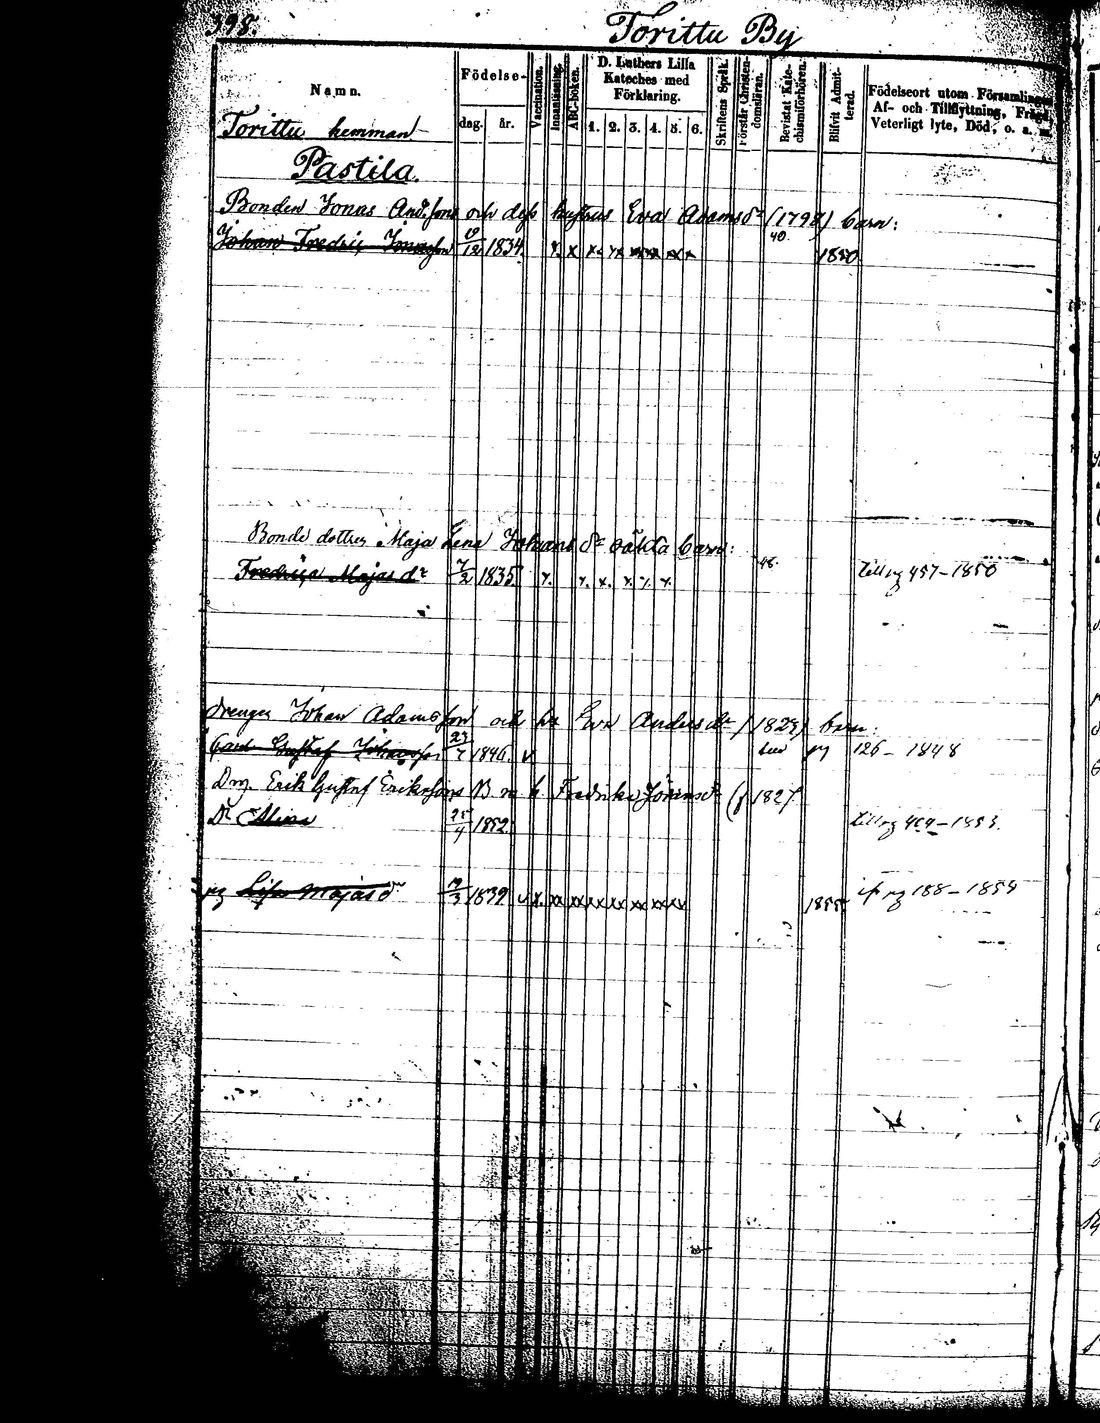 398.
Torittu By
Namn.
Födelse-
dag.
år.
Vaccination.
Innanläsning.
ABC-boken.
D. Luthers Lilla
Kateches med
Förklaring.
1. 2. 3. 4. 5. 6.
Skriftens Språk.
Förstår Christen-
domsläran.
Bevistat Kate-
chismiförhören.
Blifvit Admit-
terad.
Födelseort utom Församlingen
Af- och Tillflyttning, Frägd,
Veterligt lyte, Död, o. s. v.
Torittu hemman
Pastila.
Bonden Jonas And.sons och dess hustrus Eva Adamsdr (1798) barn:
Johan Fredric Jonasson 19/12 1834. x x x x xx xx xx x 40. 1850.
Bonde dottren Maja Lena Johansdr oäkta barn:
Fredrica Majasdr 7/2 1835 x. x. x. x x x 48. till pag 457-1850
Drengen Johan Adamsson och h Eva Andersdr (1823) barn:
Carl Gustaf Johansson 23/7 1846. v pag 126-1848
Drg. Erik Gustaf Erikssons B m h Fredrika Jöransdr (f 1827
Dr Mina 25/4 1852. till pag 464-1853.
pg Lisa Majasdr 19/3 1839 v x. xx xx xx xx xx xx xx 1855. pag 188-1854